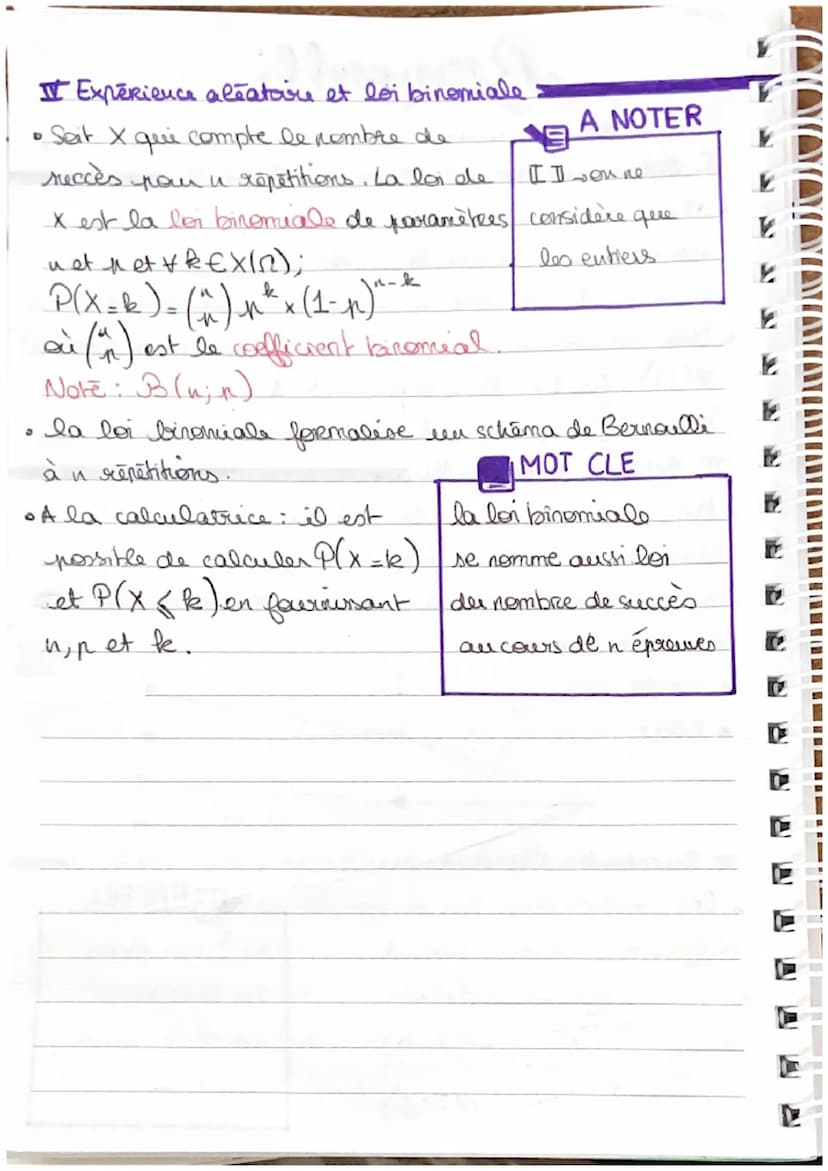 IV Expérience aléatoire et loi binomiale
• Soit X qui compte le nombre de
succès pour n répétitions. La loi de
X est la loi binomiale de paramètres
n et p et ∀ k ∈ X(Ω);
P(X=k) = (n p) p^k × (1-p)^n-k
où (n p) est le coefficient binomial.
Noté : B(n;p)
A NOTER
⟦ ⟧ → on ne
considère que
les entiers
• la loi binomiale formalise un schéma de Bernoulli
à n répétitions.
• A la calculatrice : il est
possible de calculer P(X=k)
et P(X⩽k) en fournissant
n, p et k.
MOT CLE
la loi binomiale
se nomme aussi loi
du nombre de succès
au cours de n épreuves